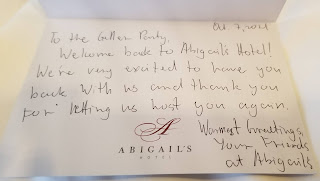 Oct 7, 2021
To the Gillen Party,
Welcome back to Abigail's Hotel!
We're very excited to have you
back with us and thank you
for letting us host you again.
Warmest Greetings,
Your Friends
at Abigail's
A
ABIGAIL'S
HOTEL